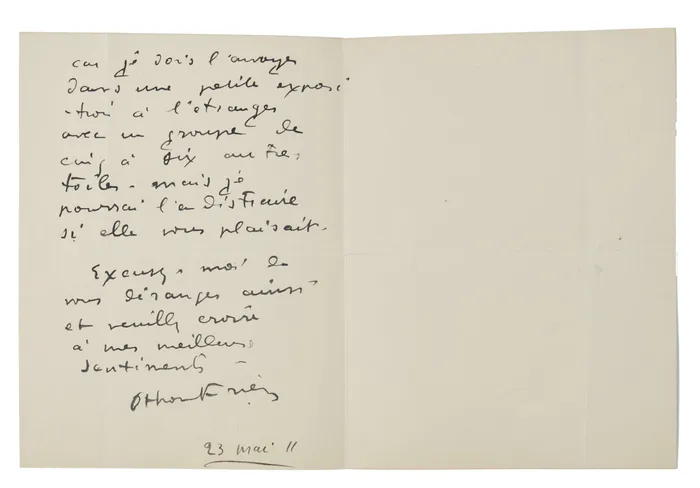 car je dois l'envoyer
dans une petite exposi
-tion à l'étranger
avec un groupe de
cinq à six autres
toiles - mais je
pourrai l'en distraire
si elle vous plaisait.
Excusez-moi de
vous déranger ainsi
et veuillez croire
à mes meilleurs
sentiments -
Othon Friesz
23 mai 11